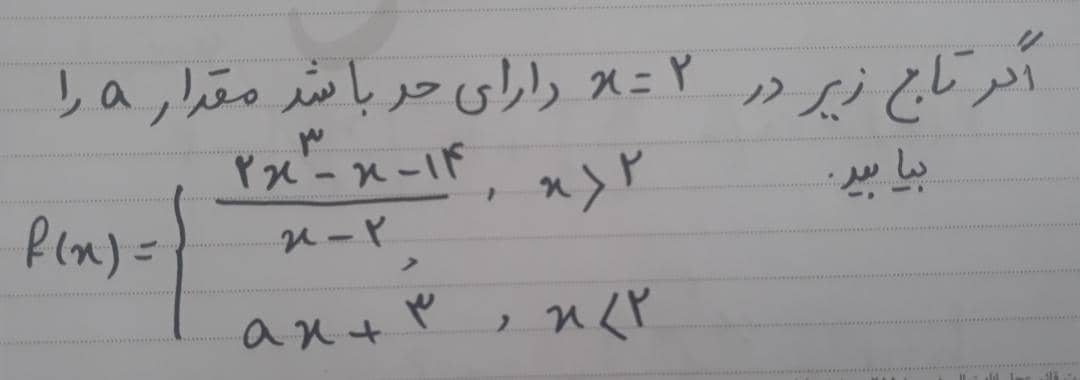 اگر تابع زیر در x = ۲ دارای حد باشد مقدار a را
بیابید.
f(x) = { (۲x³ - x - ۱۴) / (x - ۲) , x > ۲
ax + ۳ , x < ۲